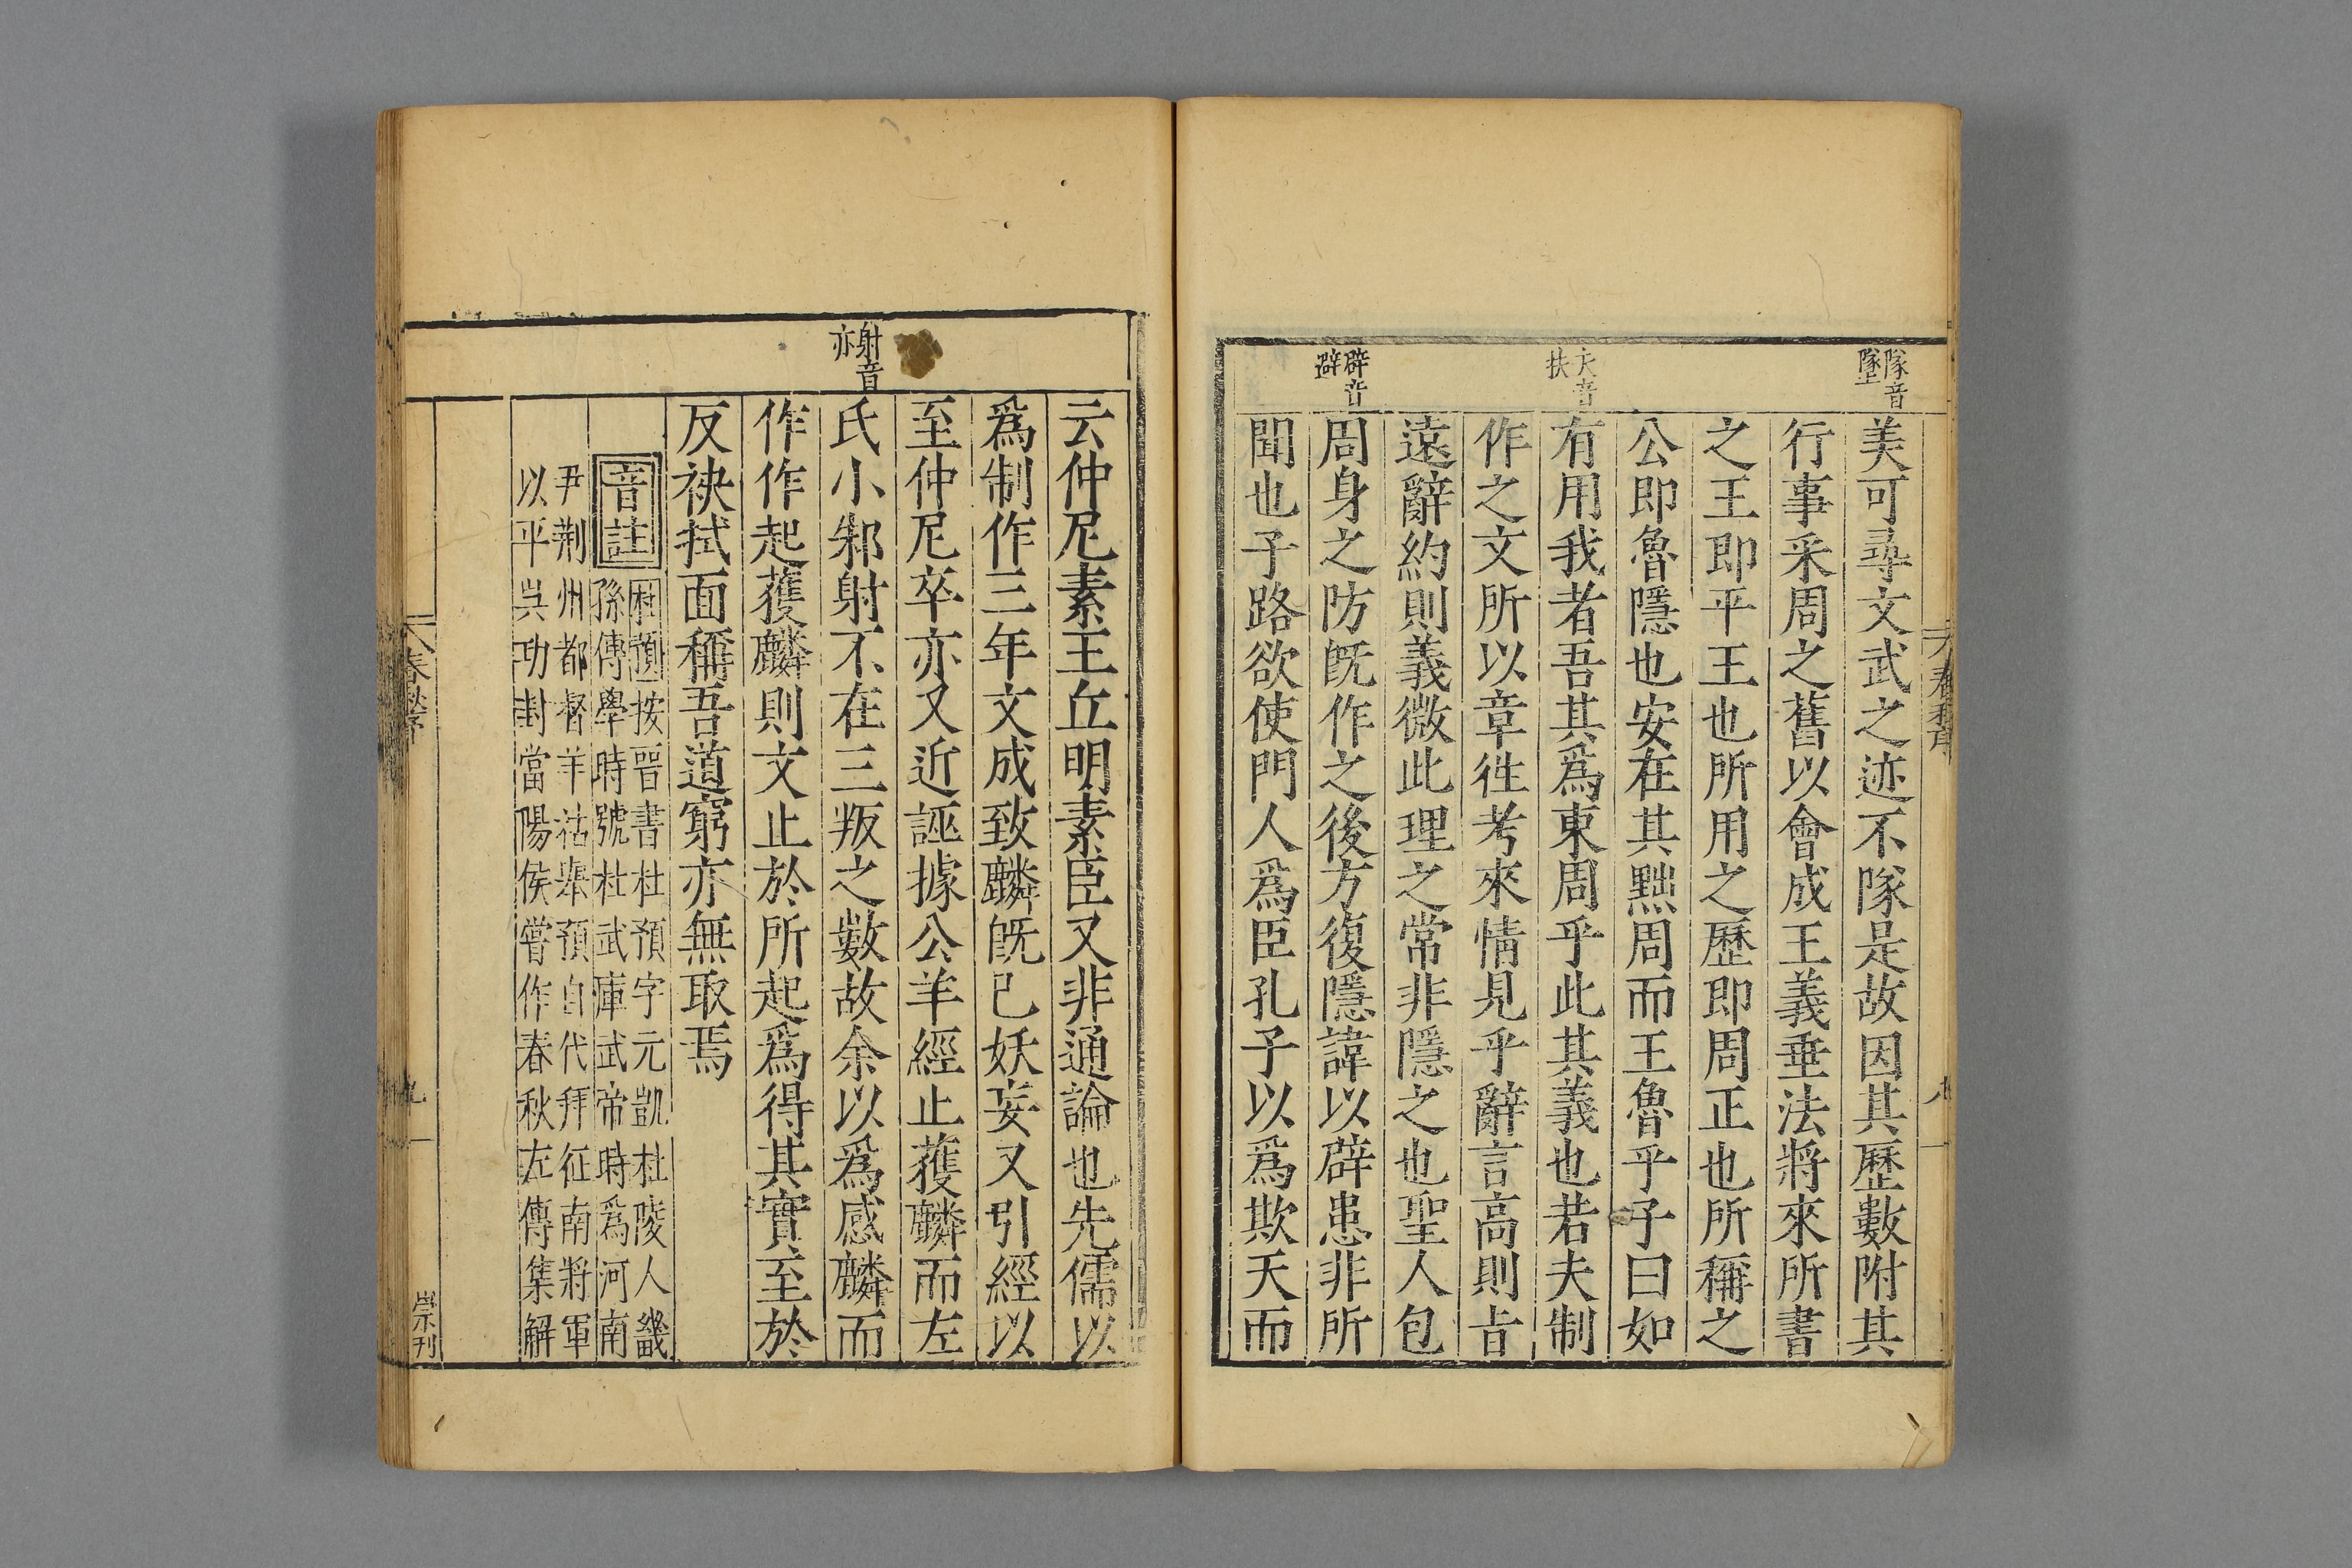 隊音
墜
夫音
扶
辟音
避
美可尋文武之迹不隊是故因其歷數附其
行事采周之舊以會成王義垂法將來所書
之王即平王也所用之歷即周正也所稱之
公即魯隱也安在其黜周而王魯乎子曰如
有用我者吾其爲東周乎此其義也若夫制
作之文所以章徃考來情見乎辭言高則㫖
遠辭約則義微此理之常非隱之也聖人包
周身之防既作之後方復隱諱以辟患非所
聞也子路欲使門人爲臣孔子以爲欺天而
射音
亦
云仲尼素王丘明素臣又非通論也先儒以
爲制作三年文成致麟既已妖妄又引經以
至仲尼卒亦又近誣據公羊經止獲麟而左
氏小邾射不在三叛之數故余以爲感麟而
作作起獲麟則文止於所起爲得其實至於
反袂拭面稱吾道窮亦無取焉
音註
杜預按晉書杜預字元凱杜陵人畿
孫傳學時號杜武庫武帝時爲河南
尹荆州都督羊祜舉預自代拜征南將軍
以平吳功封當陽侯嘗作春秋左傳集解
春秋序
九
崇刊